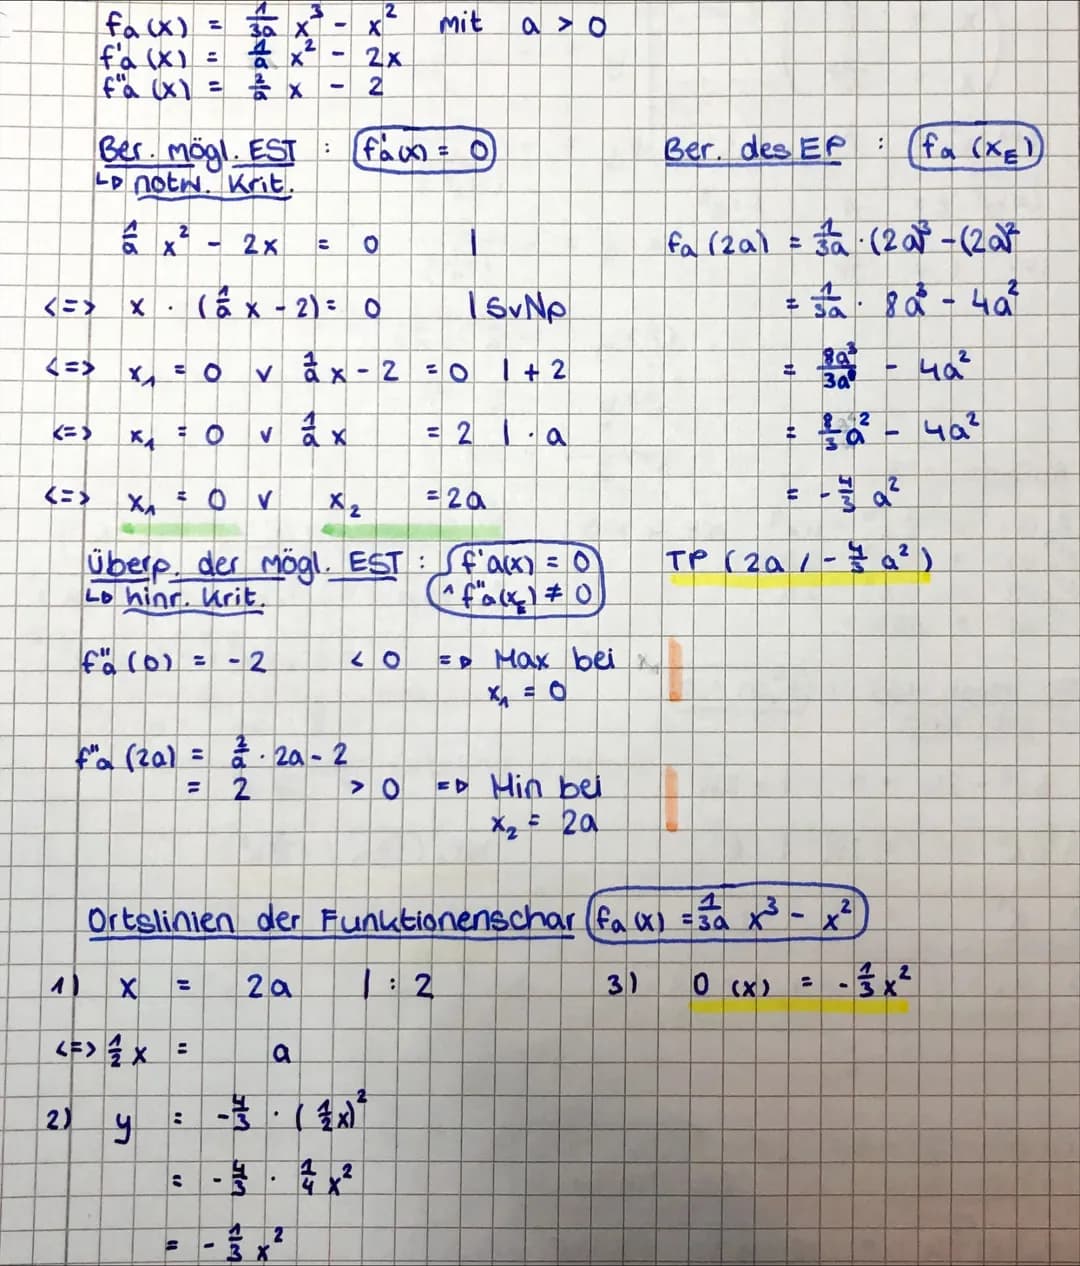 fa(x) = 1/3a x³ - x² mit a > 0
f'a(x) = 1/a x² - 2x
f''a(x) = 2/a x - 2
Ber. mögl. EST : f'a(x) = 0
↳ notw. Krit.
1/a x² - 2x = 0 |
<=> x · (1/a x - 2) = 0 | SvNp
<=> x₁ = 0 v 1/a x - 2 = 0 | + 2
<=> x₁ = 0 v 1/a x = 2 | · a
<=> x₁ = 0 v x₂ = 2a
Überp. der mögl. EST : f'a(x) = 0
↳ hinr. Krit. ^ f''a(x_E) ≠ 0
f''a(0) = -2 < 0 => Max bei
x₁ = 0
f''a(2a) = 2/a · 2a - 2
= 2 > 0 => Min bei
x₂ = 2a
Ber. des EP : fa(x_E)
fa(2a) = 1/3a · (2a)³ - (2a)²
= 1/3a · 8a³ - 4a²
= 8a³/3a - 4a²
= 8/3 a² - 4a²
= -4/3 a²
TP (2a / -4/3 a²)
Ortslinien der Funktionenschar fa(x) = 1/3a x³ - x²
1) x = 2a | : 2
<=> 1/2 x = a
2) y = -4/3 · (1/2 x)²
= -4/3 · 1/4 x²
= -1/3 x²
3) O(x) = -1/3 x²